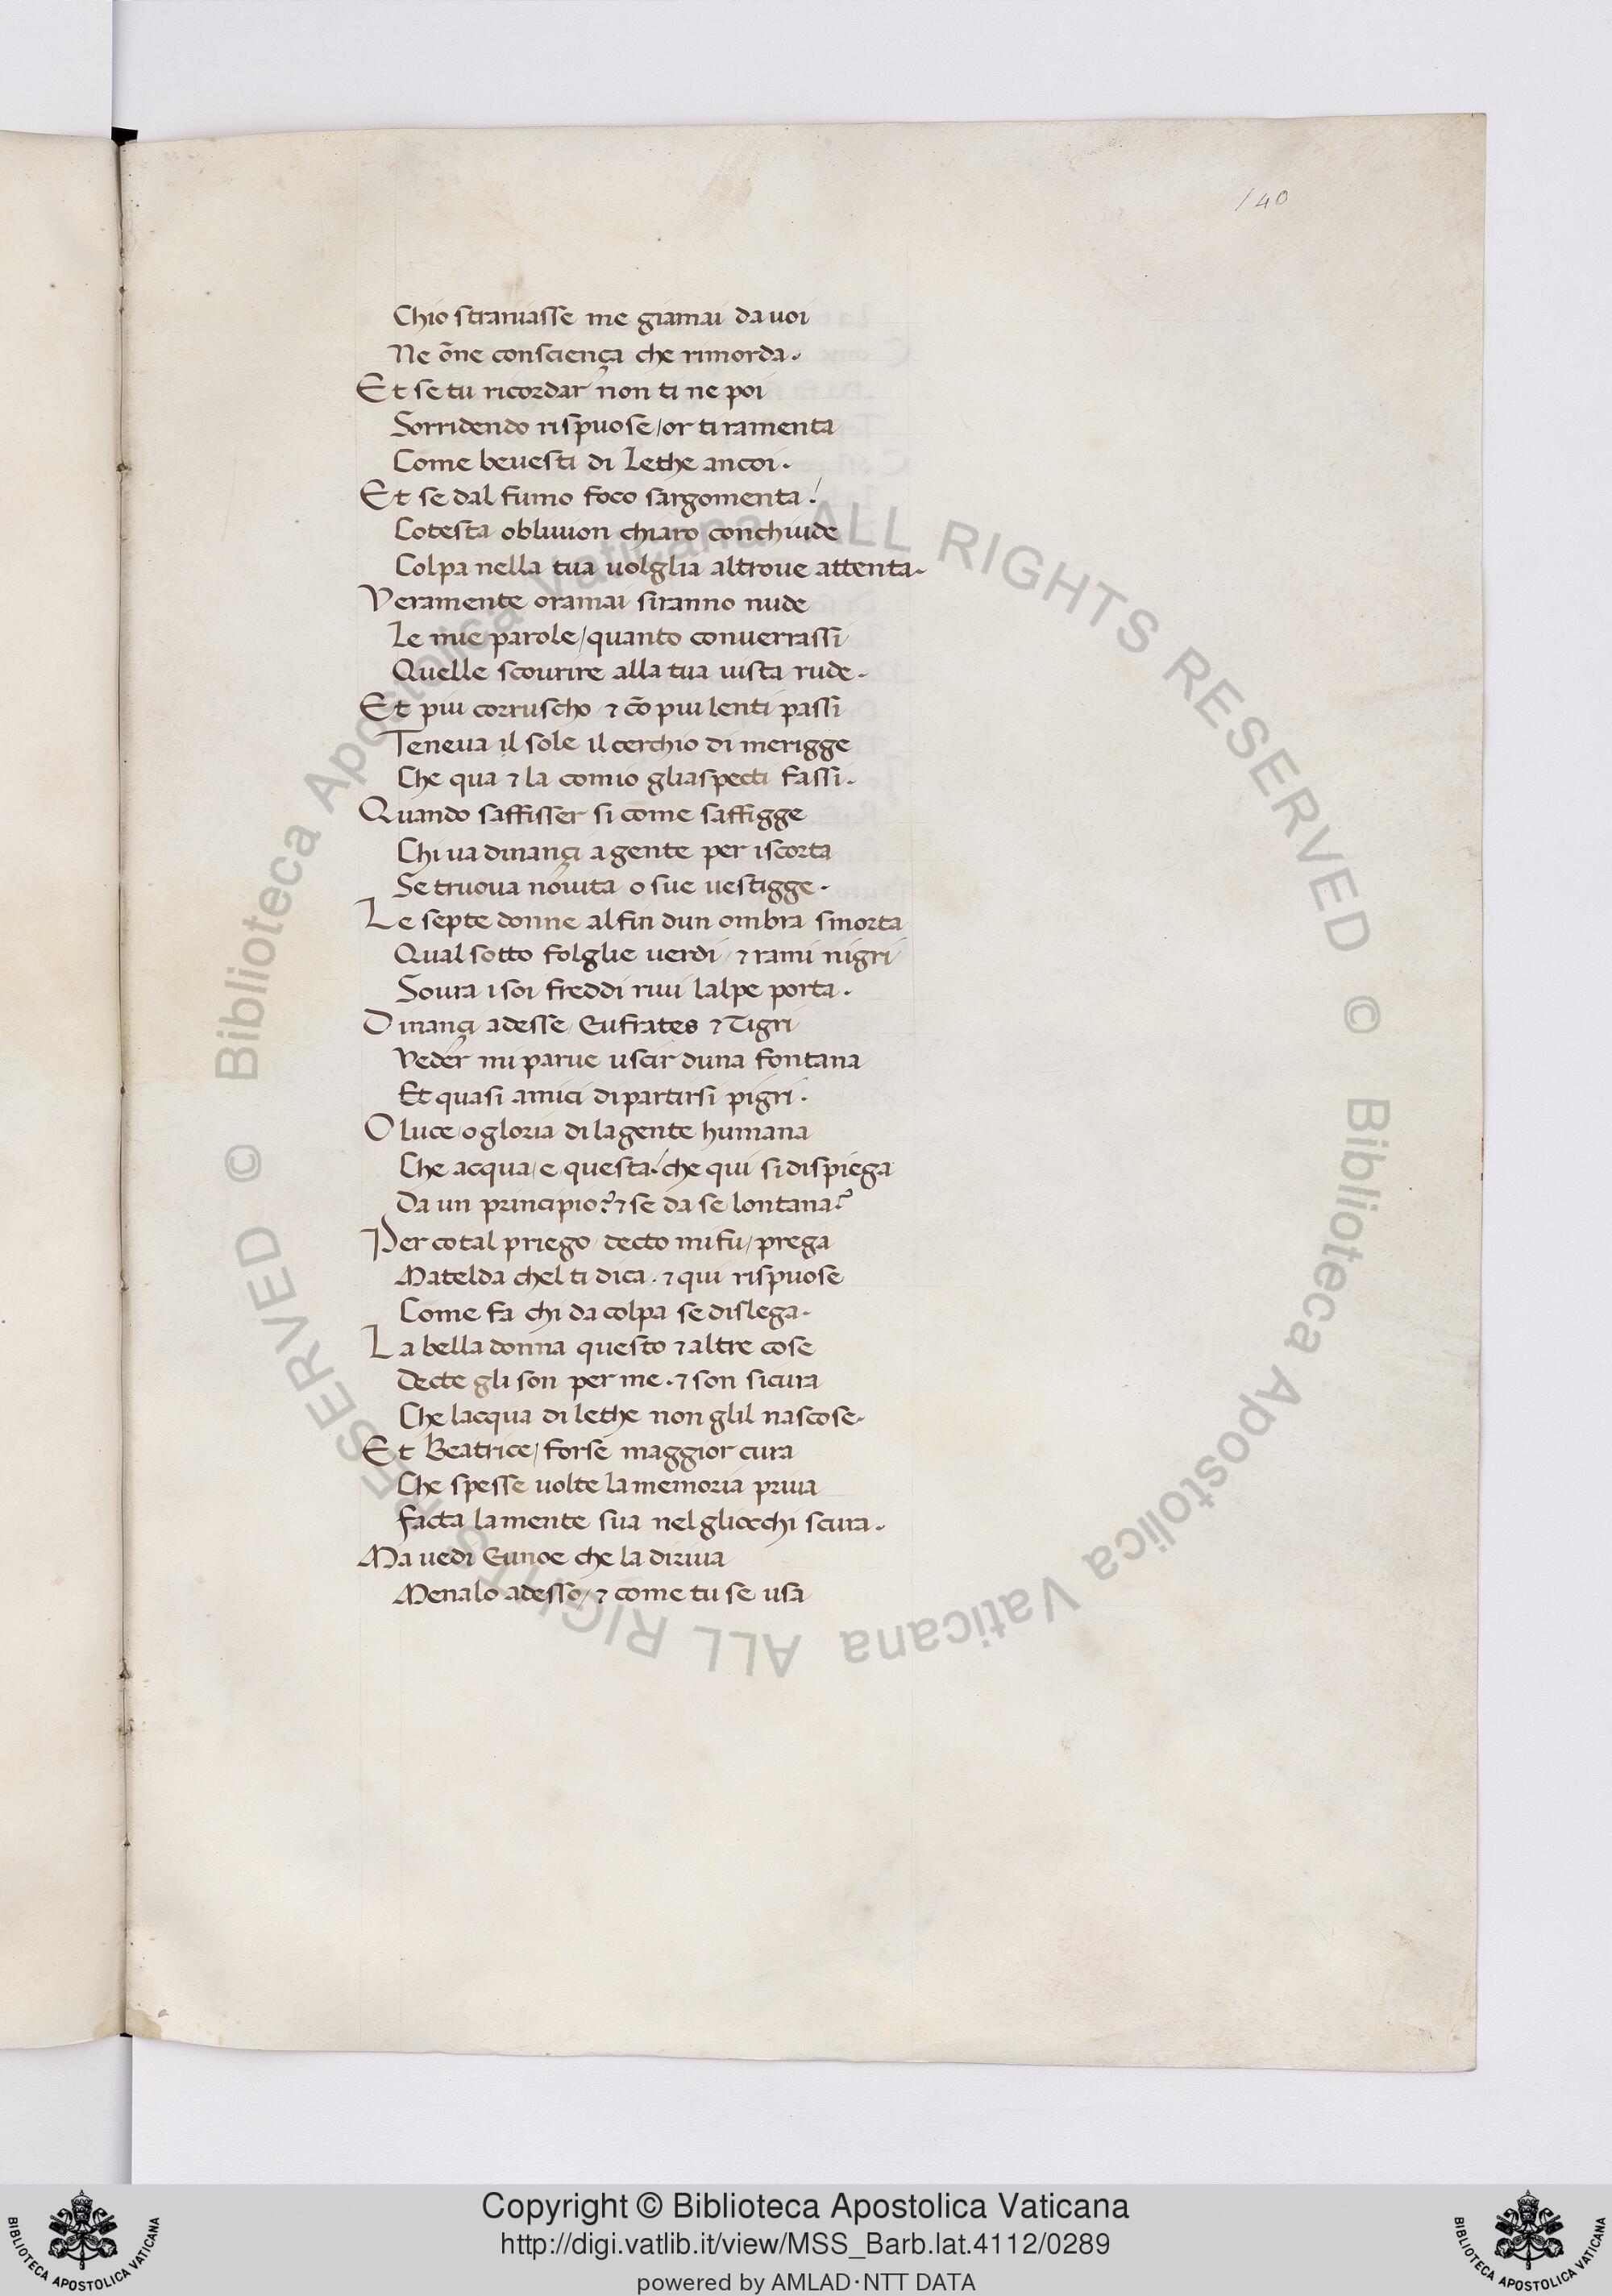 140
Chio straniasse me giamai da uoi
Ne õne consciença che rimorda.
Et se tu ricordar non ti ne poi
Sorridendo rispuose / or ti ramenta
Come beuesti di Lethe ancoi.
Et se dal fumo foco sargomenta!
Cotesta obliuion chiaro conchiude
Colpa nella tua uolglia altroue attenta.
Veramente oramai siranno nude
Le mie parole / quanto conuerrassi
Quelle scourire alla tua uista rude.
Et piu corruscho ⁊ cõ piu lenti passi
Teneua il sole il cerchio di merigge
Che qua ⁊ la comio gliaspecti fassi.
Quando saffisser si come saffigge
Chi ua dinançi a gente per iscorta
Se truoua nouita o sue uestigge.
Le septe donne al fin dun ombra smorta
Qual sotto folglie uerdi / ⁊ rami nigri
Soura i soi freddi riui lalpe porta.
Dinançi adesse / Eufrates ⁊ Tigri
Veder mi parue uscir duna fontana
Et quasi amici dipartirsi pigri.
O luce / o gloria di la gente humana
Che acqua / e questa! che qui si dispiega
Da un principio? ⁊ se da se lontana?
Per cotal priego / decto mi fu / prega
Matelda chel ti dica . ⁊ qui rispuose
Come fa chi da colpa se dislega.
La bella donna questo ⁊ altre cose
Decte gli son per me . ⁊ son sicura
Che lacqua di lethe non glil nascose.
Et Beatrice / forse maggior cura
Che spesse uolte la memoria priua
facta la mente sua nel gliocchi scura.
Ma uedi Eunoe che la diriua
Menalo adesso / ⁊ come tu se usa
© Biblioteca Apostolica Vaticana ALL RIGHTS RESERVED
© Biblioteca Apostolica Vaticana ALL RIGHTS RESERVED
Copyright © Biblioteca Apostolica Vaticana
http://digi.vatlib.it/view/MSS_Barb.lat.4112/0289
powered by AMLAD·NTT DATA
BIBLIOTECA APOSTOLICA VATICANA
BIBLIOTECA APOSTOLICA VATICANA